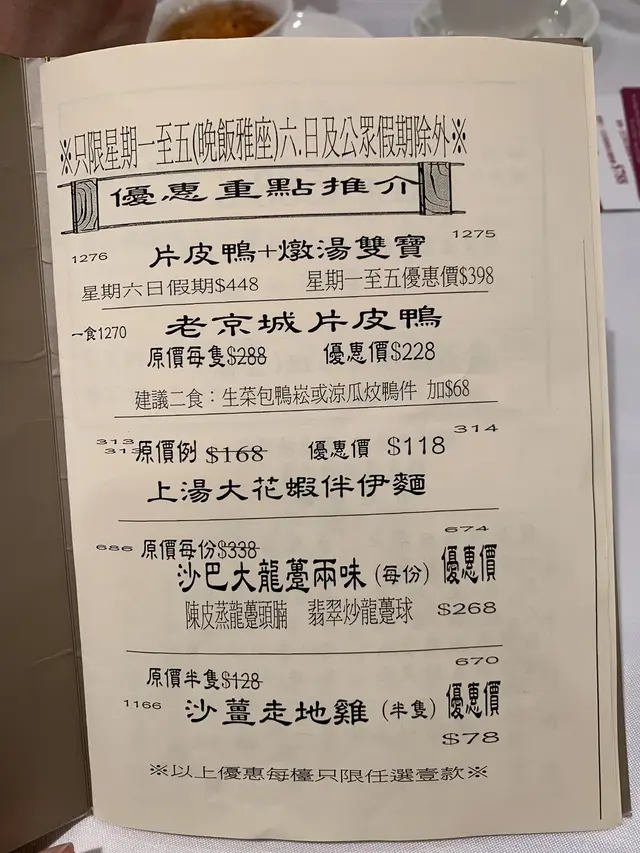 ※只限星期一至五(晚飯雅座)六.日及公眾假期除外※
優惠重點推介
1276 片皮鴨+燉湯雙寶 1275
星期六日假期$448 星期一至五優惠價$398
一食1270 老京城片皮鴨
原價每隻$288 優惠價$228
建議二食：生菜包鴨崧或涼瓜炆鴨件 加$68
313 314
313 原價例 $168 優惠價 $118
上湯大花蝦伴伊麵
674
686 原價每份$338
沙巴大龍躉兩味 (每份) 優惠價
陳皮蒸龍躉頭腩 翡翠炒龍躉球 $268
670
原價半隻$128
1166 沙薑走地雞 (半隻) 優惠價
$78
※以上優惠每檯只限任選壹款※